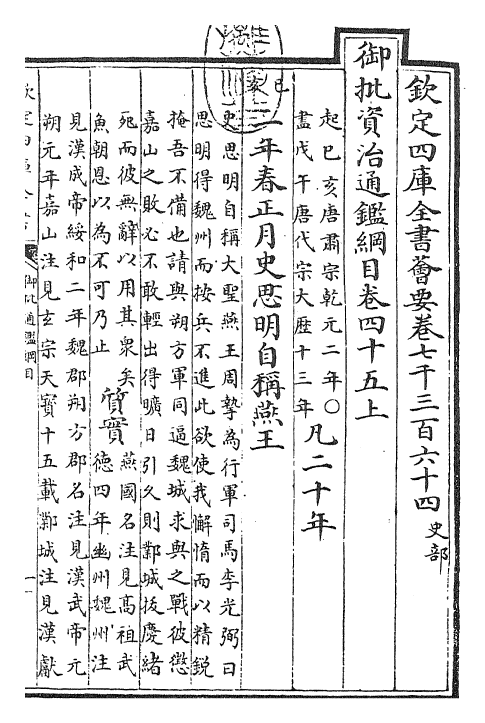 欽定四庫全書薈要卷七千三百六十四 史部
御批資治通鑑綱目卷四十五上
起己亥唐肅宗乾元二年〇
盡戊午唐代宗大歴十三年
凡二十年
己亥
二年春正月史思明自稱燕王
史思明自稱大聖燕王周摯為行軍司馬李光弼曰
思明得魏州而按兵不進此欲使我懈惰而以精鋭
掩吾不備也請與朔方軍同逼魏城求與之戰彼懲
嘉山之敗必不敢輕出得曠日引久則鄴城拔慶緒
死而彼無辭以用其衆矣
魚朝恩以為不可乃止
質實
燕國名注見髙祖武
德四年幽州魏州注
見漢成帝綏和二年魏郡朔方郡名注見漢武帝元
朔元年嘉山注見玄宗天寳十五載鄴城注見漢獻
欽定四庫全書
御批通鑑綱目
一